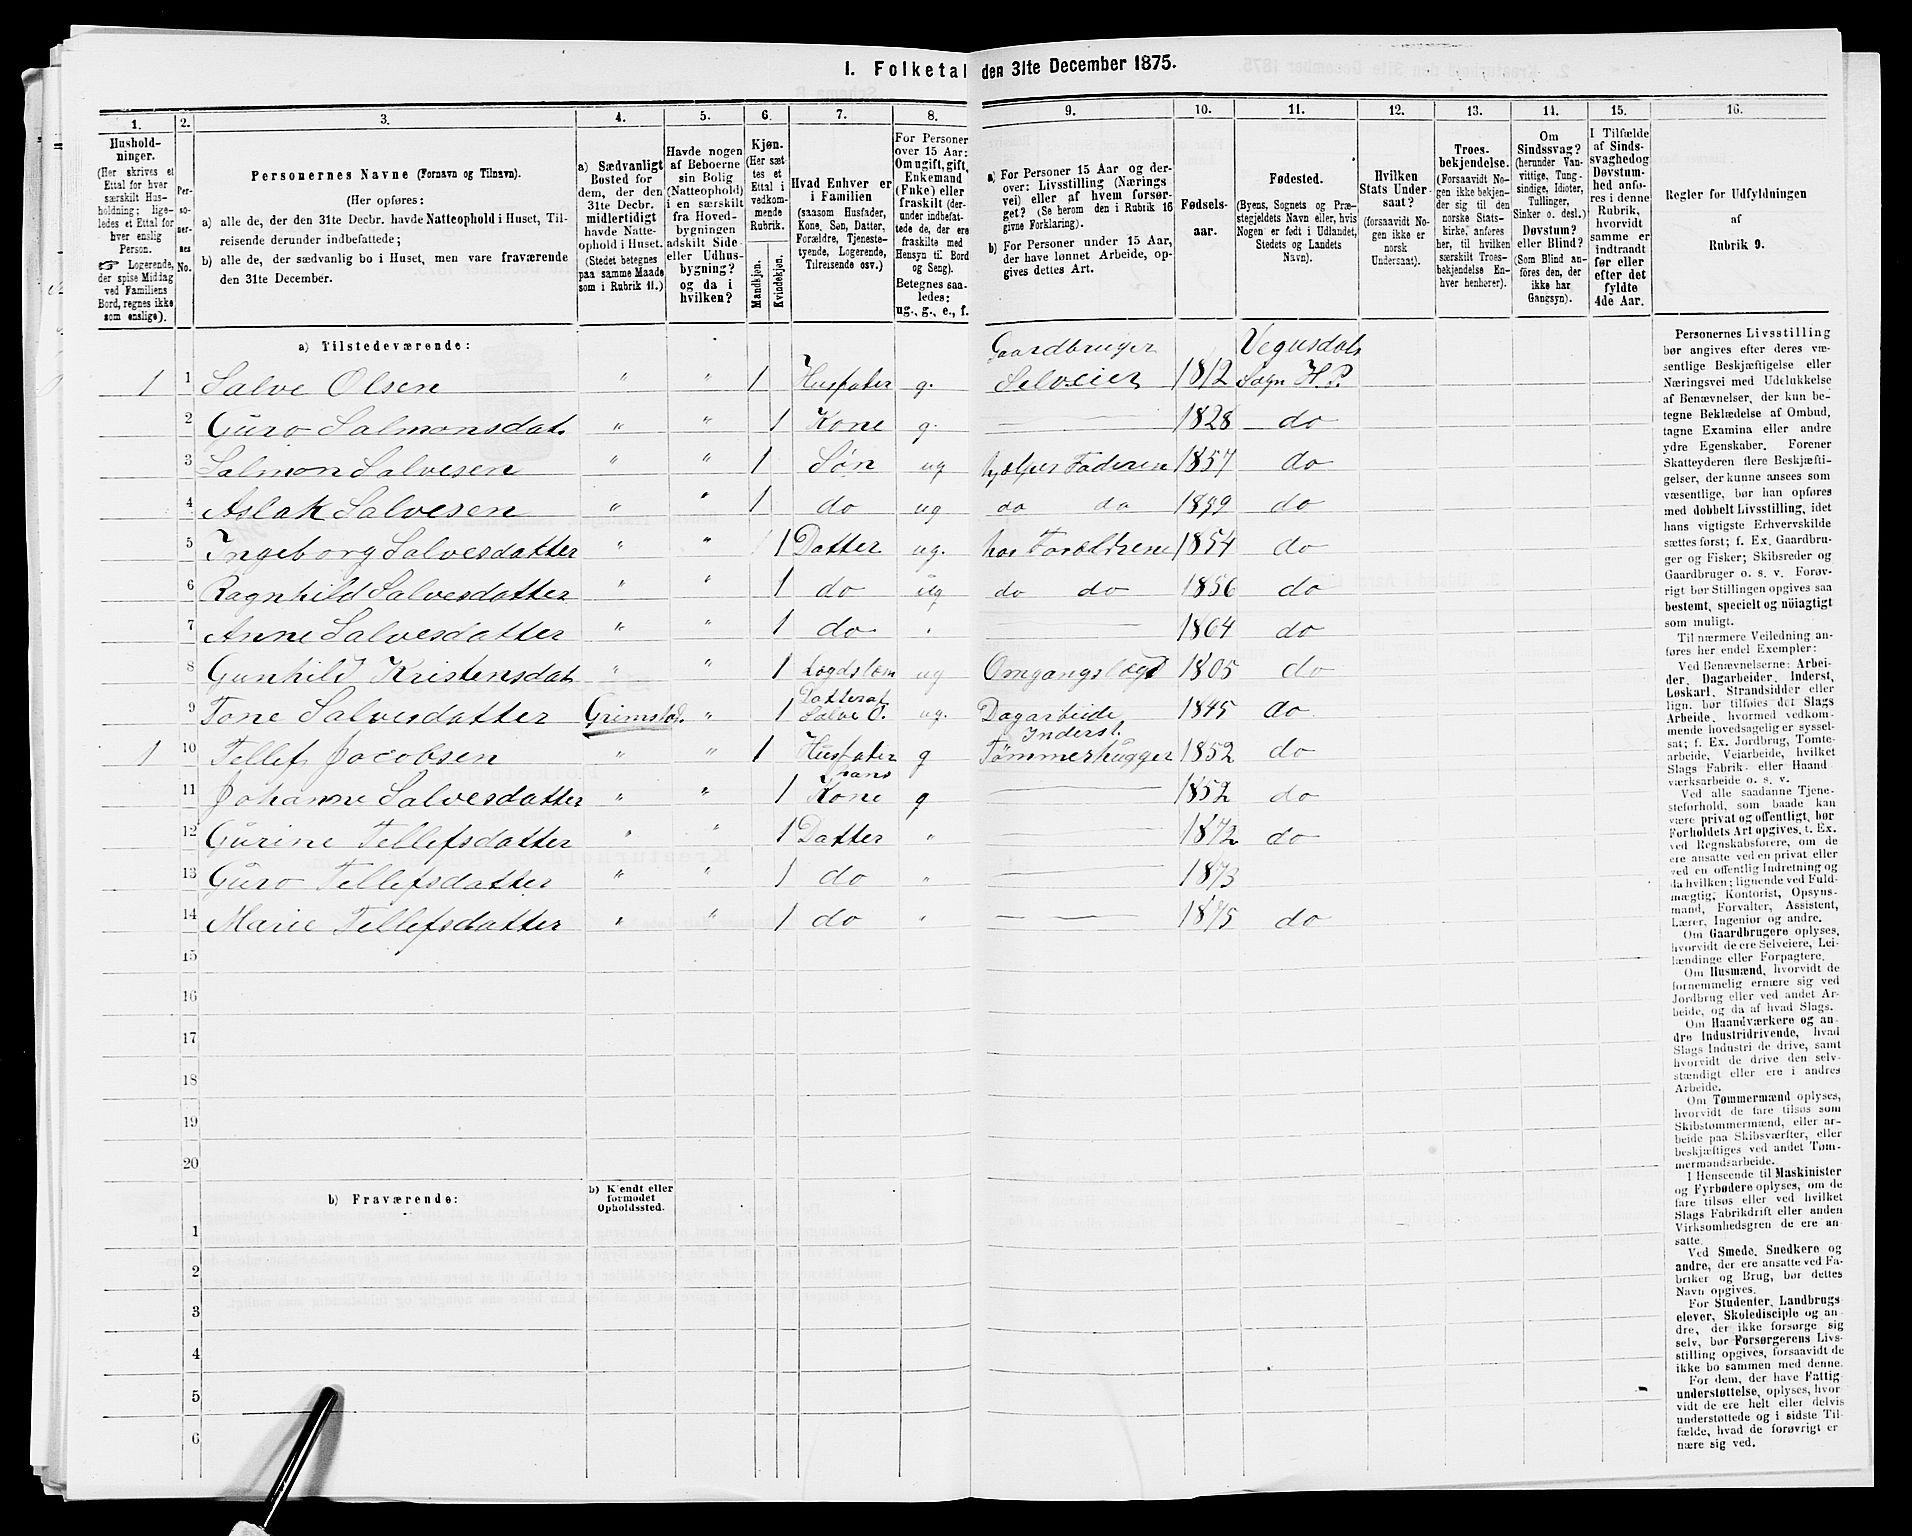 I. Folketal den 31te December 1875.
1. 2. 3. 4. 5. 6. 7. 8. 9. 10. 11. 12. 13. 14. 15. 16.
Hushold-
ninger.
(Her skrives et
Ettal for hver
særskilt Hus-
holdning; lige-
ledes et Ettal for
hver enslig
Person.
☞ Logerende,
der spise Middag
ved Familiens
Bord, regnes ikke
som enslige).
Per-
so-
ner-
nes
No.
Personernes Navne (Fornavn og Tilnavn).
(Her opføres:
a) alle de, der den 31te Decbr. havde Natteophold i Huset, Til-
reisende derunder indbefattede;
b) alle de, der sædvanlig bo i Huset, men vare fraværende
den 31te December.
a) Sædvanligt
Bosted for
dem, der den
31te Decbr.
midlertidigt
havde Natte-
ophold i Huset.
(Stedet betegnes
paa samme Maade
som i Rubrik 11.)
Havde nogen
af Beboerne
sin Bolig
(Natteophold)
i en særskilt
fra Hoved-
bygningen
adskilt Side-
eller Udhus-
bygning?
og da i
hvilken?
Kjøn.
(Her sæt-
tes et
Ettal i
vedkom-
mende
Rubrik.
Mandkjøn.
Kvindekjøn.
Hvad Enhver er
i Familien
(saasom Husfader,
Kone, Søn, Datter,
Forældre, Tjeneste-
tyende, Logerende,
Tilreisende osv.)
For Personer
over 15 Aar:
Om ugift, gift,
Enkemand
(Enke) eller
fraskilt (der-
under indbefat-
tede de, der ere
fraskilte med
Hensyn til Bord
og Seng).
Betegnes saa-
ledes:
ug., g., e., f.
a) For Personer 15 Aar og der-
over: Livsstilling (Nærings-
vei) eller af hvem forsør-
get? (Se herom den i Rubrik 16
givne Forklaring).
b) For Personer under 15 Aar,
der have lønnet Arbeide, op-
gives dettes Art.
Fødsels-
aar.
Fødested.
(Byens, Sognets og Præ-
stegjeldets Navn eller, hvis
Nogen er født i Udlandet,
Stedets og Landets
Navn).
Hvilken
Stats Under-
saat?
(forsaavidt No-
gen ikke er
norsk
Undersaat).
Troes-
bekjendelse.
(Forsaavidt No-
gen ikke bekjen-
der sig til den
norske Stats-
kirke, anføres
her, til hvilken
særskilt Troes-
bekjendelse En-
hver henhører).
Om
Sindssvag?
(herunder Van-
vittige, Tung-
sindige, Idioter,
Tullinger,
Sinker o. desl.)
Døvstum?
eller Blind?
(Som Blind an-
føres den, der
ikke har
Gangsyn).
I Tilfælde
af Sinds-
svaghed og
Døvstum-
hed anfø-
res i denne
Rubrik,
hvorvidt
samme er
indtraadt
før eller
efter det
fyldte
4de Aar.
Regler for Udfyldningen
af
Rubrik 9.
a) Tilstedeværende:
Gaardbruger Vegusdals
1 1 Salve Olsen " " 1 Husfader g. Selveier 1812 Sogn H. P.
2 Guro Salmonsdat. " " 1 Kone g. — 1828 do
3 Salmon Salvesen " " 1 Søn ug hjælper Faderen 1857 do
4 Aslak Salvesen " " 1 do ug do do do
5 Ingeborg Salvesdatter " " 1 Datter ug. hos Forældrene 1854 do
6 Ragnhild Salvesdatter " " 1 do ug do do 1856 do
7 Anne Salvesdatter " " 1 do . — 1864 do
8 Gunhild Kristensdat " " 1 Lægdslem ug Omgangslægd 1805 do
Datter af
9 Tone Salvesdatter Grimstad. " 1 Salve O. ug. Dagarbeide 1845 do
Inderst.
1 10 Tellef Jacobsen " " 1 Husfader g Tømmerhugger 1852 do
hans
11 Johanne Salvesdatter " " 1 Kone g — 1852 do
12 Gurine Tellefsdatter " " 1 Datter " — 1872 do
13 Guro Tellefsdatter " " 1 do " — 1873
14 Marie Tellefsdatter " " 1 do " — 1875 do
15
16
17
18
19
20
b) Fraværende:
b) Kjendt eller
formodet
Opholdssted.
1
2
3
4
5
6
Personernes Livsstilling
bør angives efter deres væ-
sentlige Beskjæftigelse eller
Næringsvei med Udelukkelse
af Benævnelser, der kun be-
tegne Beklædelse af Ombud,
tagne Examina eller andre
ydre Egenskaber. Forener
Skatteyderen flere Beskjæfti-
gelser, der kunne ansees som
væsentlige, bør han opføres
med dobbelt Livsstilling, idet
hans vigtigste Erhvervskilde
sættes først; f. Ex. Gaardbru-
ger og Fisker; Skibsreder og
Gaardbruger o. s. v. Forøv-
rigt bør Stillingen opgives saa
bestemt, specielt og nöiagtigt
som muligt.
Til nærmere Veiledning an-
føres her endel Exempler:
Ved Benævnelserne: Arbei-
der, Dagarbeider, Inderst,
Løskarl, Strandsidder eller
lign. bør tilføies det Slags
Arbeide, hvormed vedkom-
mende hovedsagelig er syssel-
sat; f. Ex. Jordbrug, Tomte-
arbeide, Veiarbeide, hvilket
Slags Fabrik- eller Haand-
værksarbeide o. s. v.
Ved alle saadanne Tjene-
steforhold, som baade kan
være privat og offentligt, bør
Forholdets Art opgives, t. Ex.
ved Regnskabsførere, om de
ere ansatte ved en privat eller
ved en offentlig Indretning og
da hvilken; lignende ved Fuld-
mægtig, Kontorist, Opsyns-
mand, Forvalter, Assistent,
Lærer, Ingeniør og andre.
Om Gaardbrugere oplyses,
hvorvidt de ere Selveiere, Lei-
lændinge eller Forpagtere.
Om Husmænd, hvorvidt de
fornemmelig ernære sig ved
Jordbrug eller ved andet Ar-
beide, og da af hvad Slags.
Om Haandværkere og an-
dre Industridrivende, hvad
Slags Industri de drive, samt
hvorvidt de drive den selv-
stændigt eller ere i andres
Arbeide.
Om Tømmermænd oplyses,
hvorvidt de fare tilsøs som
Skibstømmermænd, eller ar-
beide paa Skibsværfter, eller
beskjæftiges ved andet Tøm-
mermandsarbeide.
I Henseende til Maskinister
og Fyrbødere oplyses, om de
fare tilsøs eller ved hvilket
Slags Fabrikdrift eller anden
Virksomhedsgren de ere an-
satte.
Ved Smede, Snedkere og
andre, der ere ansatte ved Fa-
briker og Brug, bør dettes
Navn opgives.
For Studenter, Landbrugs-
elever, Skoledisciple og an-
dre, der ikke forsørge sig
selv, bør Forsørgerens Livs-
stilling opgives, forsaavidt de
ikke bo sammen med denne.
For dem, der have Fattig-
understøttelse, oplyses, hvor-
vidt de ere helt eller delvis
understøttede og i sidste Til-
fælde, hvad de forøvrigt er-
nære sig ved.